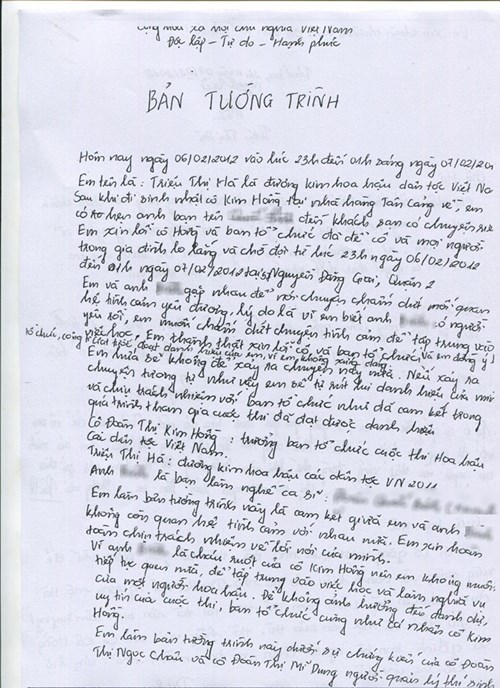 Cộng hòa xã hội chủ nghĩa Việt Nam
Độc lập - Tự do - Hạnh phúc
BẢN TƯỜNG TRÌNH
Hôm nay ngày 06/02/2012 vào lúc 23h đến 01h sáng ngày 07/02/201
Em tên là: Triệu Thị Hà là đương kim hoa hậu dân tộc Việt Na
Sau khi đi sinh nhật cô Kim Hồng tại nhà hàng Tân Cảng về, em
có hẹn anh bạn tên đến khách sạn có chuyện riê
Em xin lỗi cô Hồng và ban tổ chức đã để cô và mọi người
trong gia đình lo lắng và chờ đợi từ lúc 23h ngày 06/02/2012
đến 01h ngày 07/02/2012 tại Nguyễn Đăng Giai, Quận 2
Em và anh gặp nhau để nói chuyện chấm dứt mối quan
hệ tình cảm yêu đương, lý do là vì em biết anh có người
yêu rồi, em muốn chấm dứt chuyện tình cảm để tập trung vào
việc học, Em thành thật xin lỗi cô và ban tổ chức
Em hứa sẽ không để xảy ra chuyện này nữa. Nếu xảy ra và em đồng ý để
tổ chức, công ty tước đoạt danh hiệu của em, vì em không xứng đáng
chuyện tương tự như vậy em sẽ tự rút lui danh hiệu của mì
và chịu trách nhiệm với ban tổ chức như đã cam kết trong
quá trình tham gia cuộc thi đã đạt được danh hiệu
Cô Đoàn Thị Kim Hồng: trưởng ban tổ chức cuộc thi Hoa hậu
các dân tộc Việt Nam.
Triệu Thị Hà: đương kim hoa hậu các dân tộc VN 2011
Anh là bạn làm nghề ca sĩ:
Em làm bản tường trình này là cam kết giữa em và anh
không còn quan hệ tình cảm với nhau nữa. Em xin hoàn
toàn chịu trách nhiệm về lời nói của mình.
Vì anh là cháu ruột của cô Kim Hồng nên em không muốn
tiếp tục quen nữa, để tập trung vào việc học và làm nghĩa vụ
của một người hoa hậu. Để không ảnh hưởng đến danh dự,
uy tín của cuộc thi, ban tổ chức cũng như cá nhân cô Kim
Hồng.
Em làm bản tường trình này dưới sự chứng kiến của cô Đoàn
Thị Ngọc Châu và cô Đoàn Thị Mĩ Dung người quản lý thí sinh